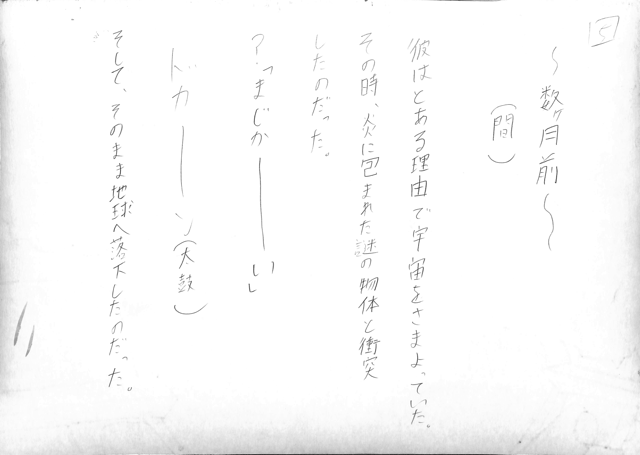 5
～数ヶ月前～
（間）
彼はとある理由で宇宙をさまよっていた。
その時、炎に包まれた謎の物体と衝突
したのだった。
？：「まじかーーーい」
ドカーーーン（太鼓）
そして、そのまま地球へ落下したのだった。